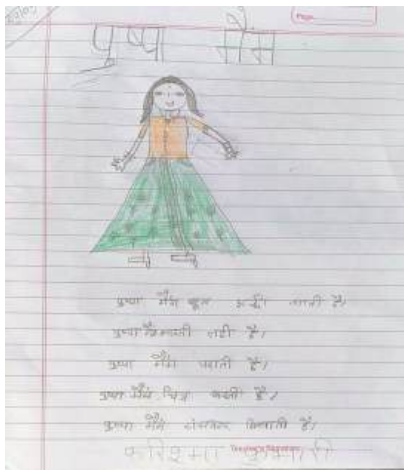 पुष्पा मैम
पुष्पा मैम बहुत अच्छी लगती है।
पुष्पा मैम मारती नही है।
पुष्पा मैम पढाती है।
पुष्पा मैम चित्र है।
पुष्पा मैम है।
करिश्मा कुमारी